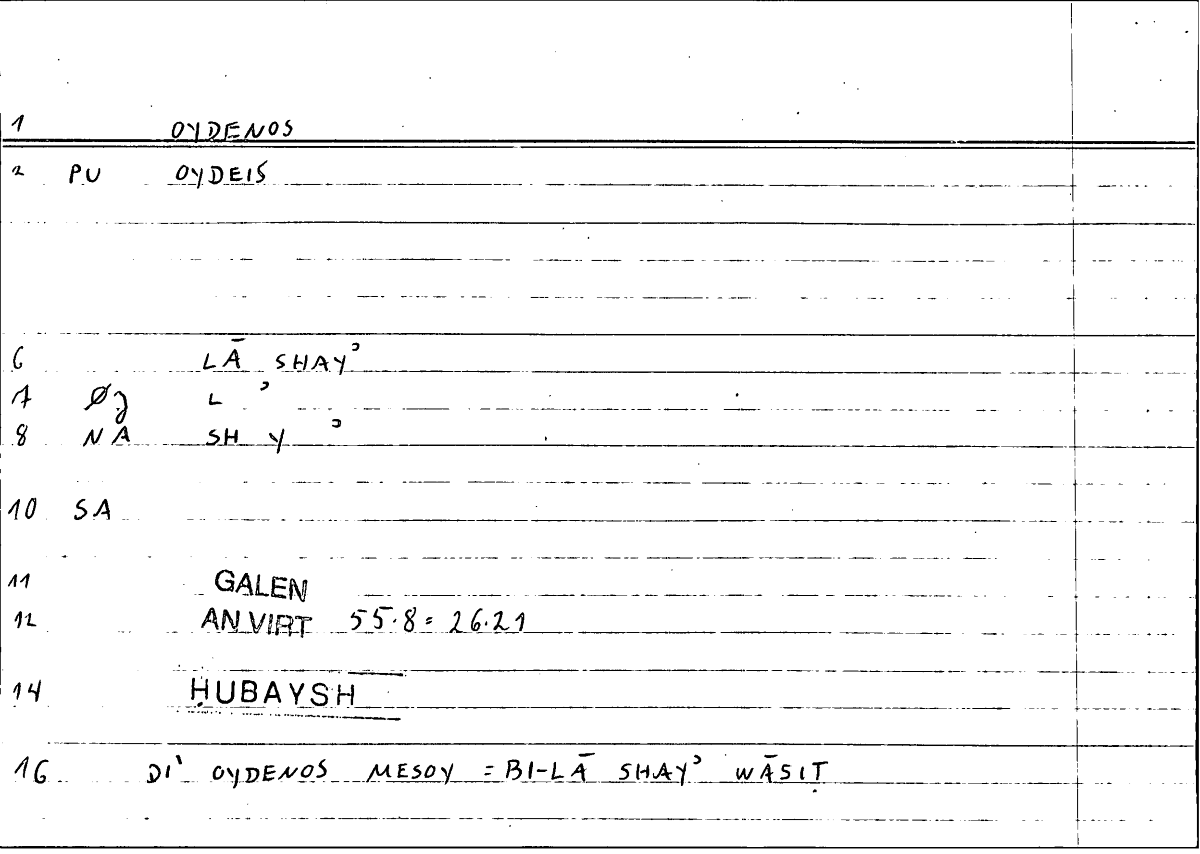 1 OYDENOS
2 PU OYDEIS
6 LĀ SHAYʾ
7 Øz L ʾ
8 NA SH Y ʾ
10 SA
11 GALEN
12 AN VIRT 55.8 = 26.21
14 ḤUBAYSH
16 DI' OYDENOS MESOY = BI-LĀ SHAYʾ WĀSIṬ